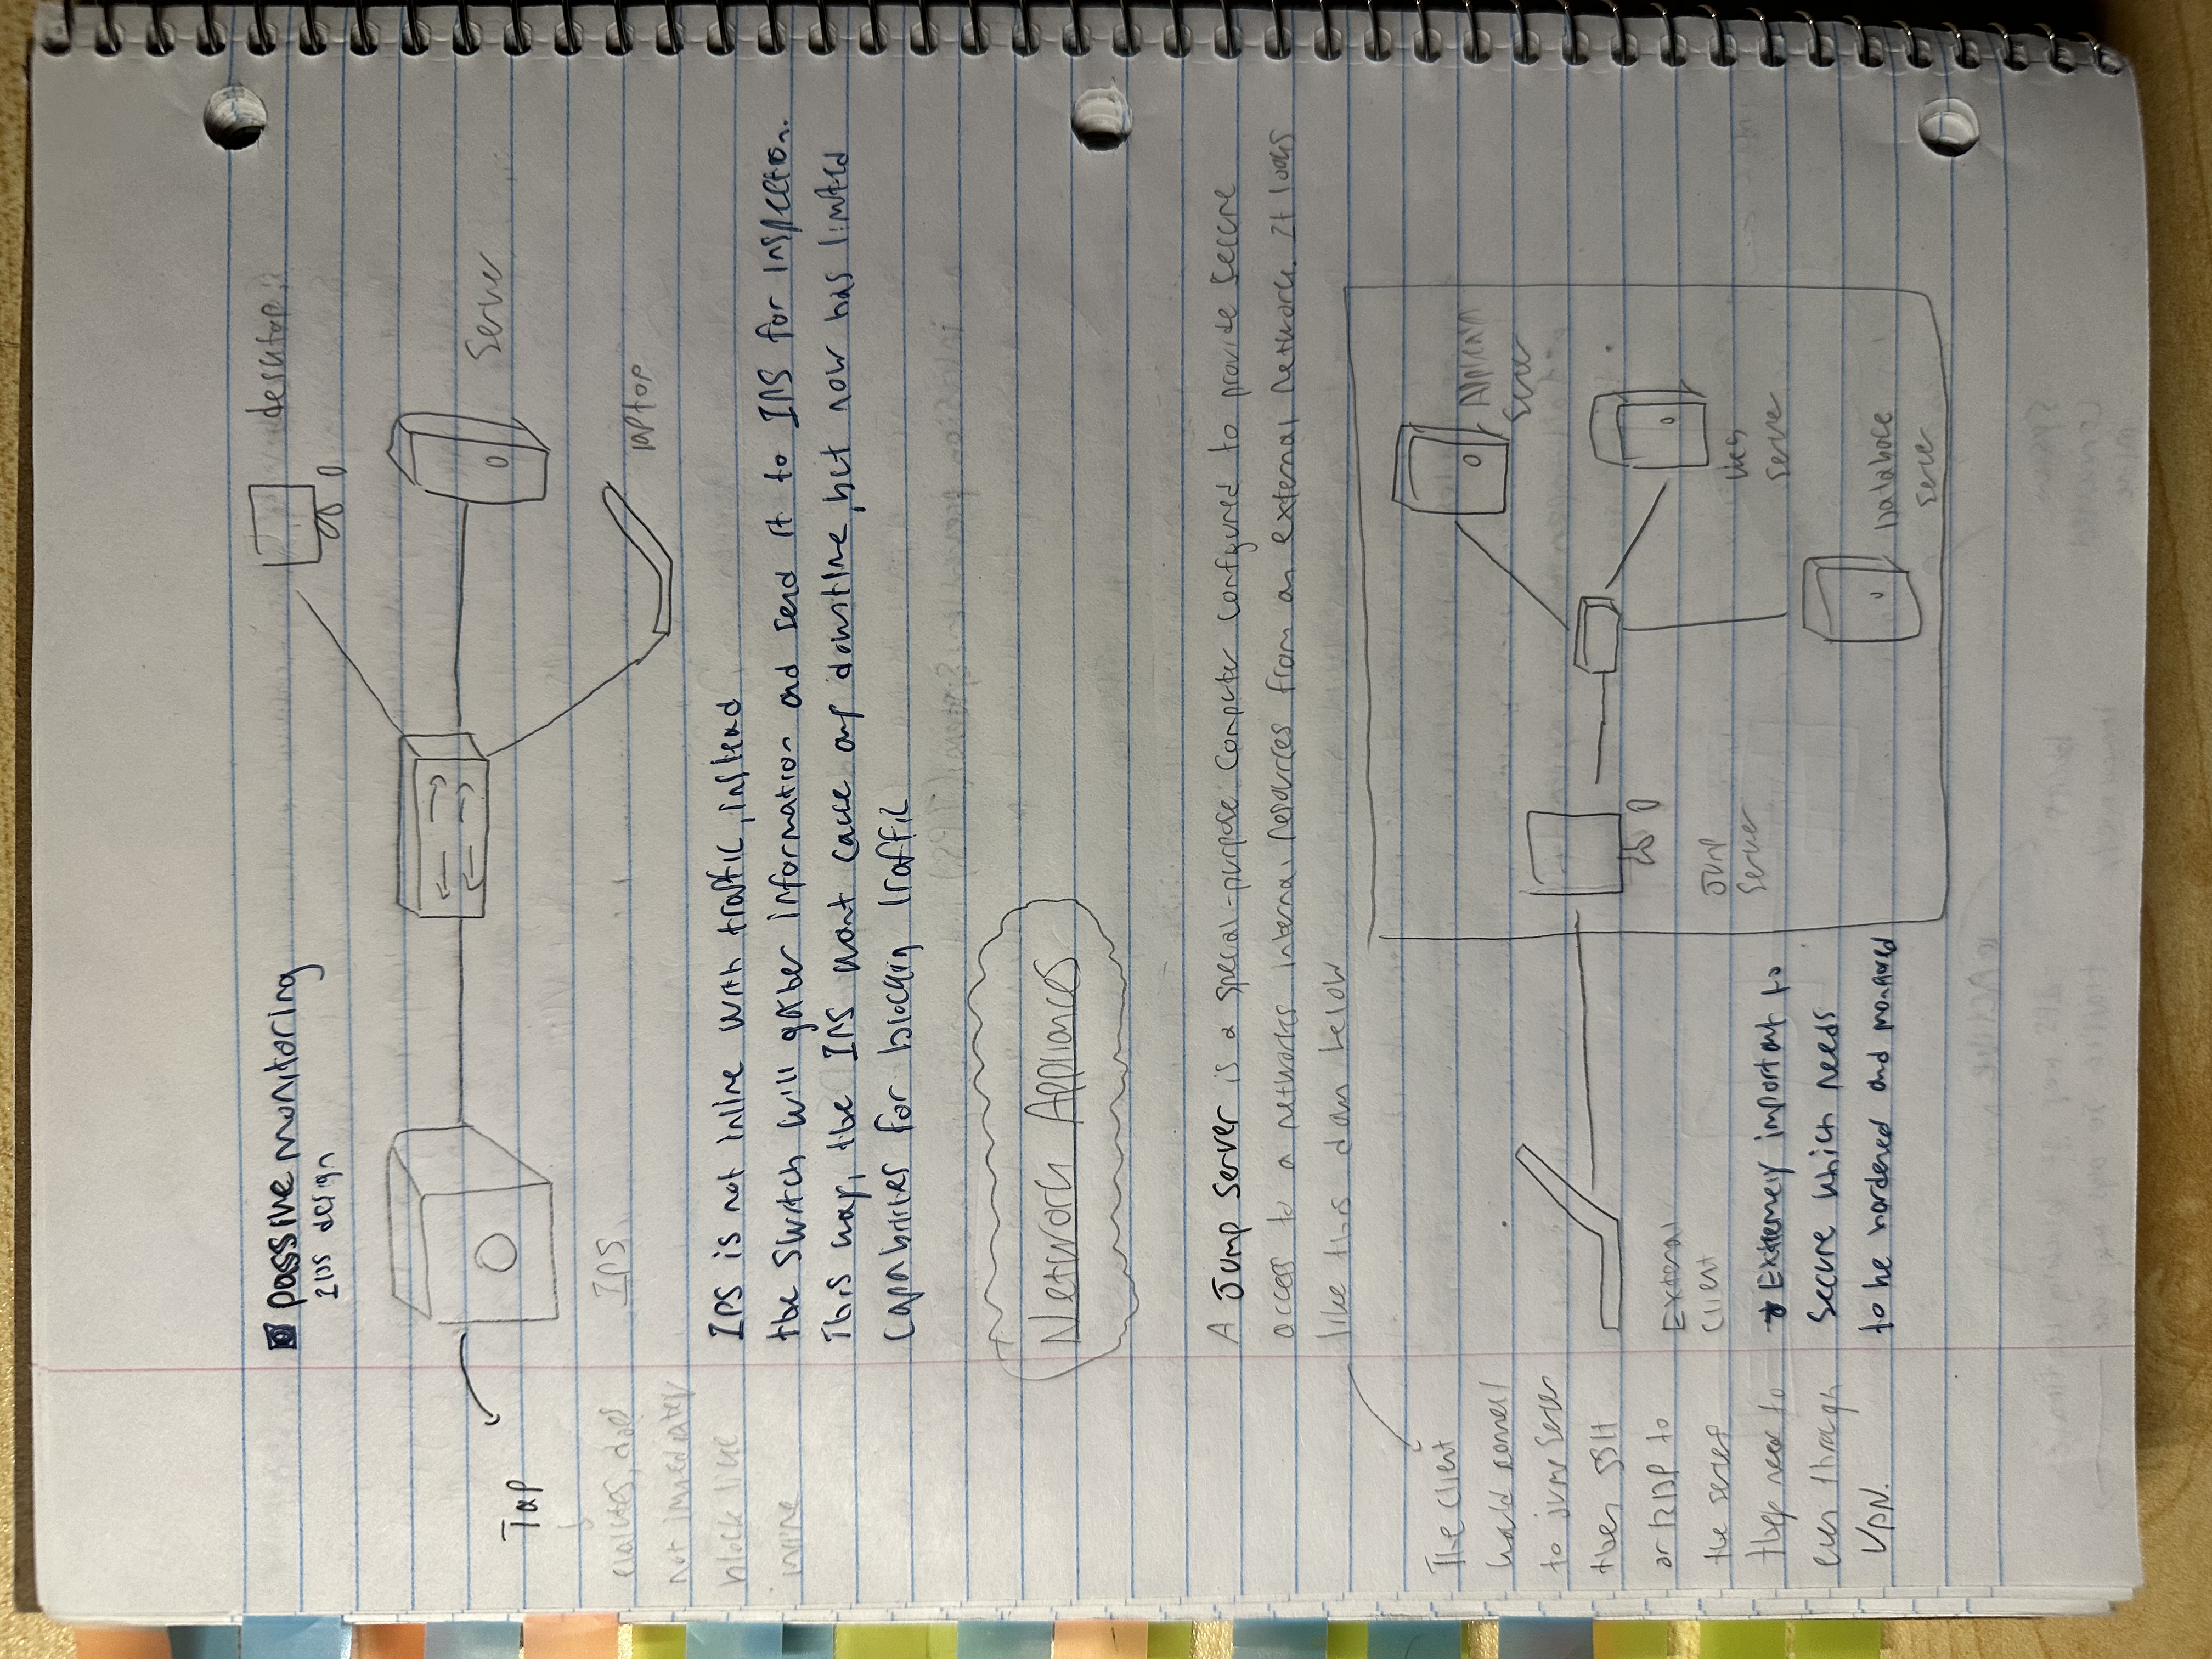 passive monitoring
IDS design
desktop
Server
Tap
IPS
evalutes, does
not immediately
block like
inline
laptop
IPS is not inline with traffic, instead
the switch will gather information and send it to IPS for inspection.
This way, the IPS wont cause any downtime, but now has limited
capabilities for blocking traffic
Network Appliances
A Jump Server is a special-purpose computer configured to provide secure
access to a networks internal resources from an external network. It looks
like this down below
The client
would connect
to jump server
then SSH
or RDP to
the server
they need to
even through
VPN.
External
Client
→ Extremely important to
secure which needs
to be hardened and monitored
Jump
Server
Server
Web
Server
Database
Server